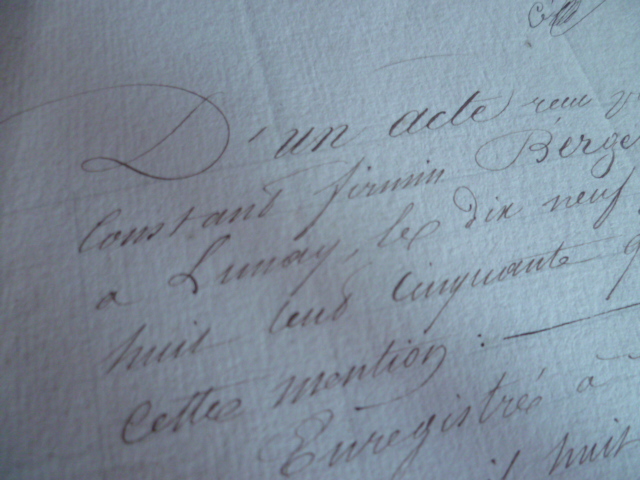 D'un acte reçu
Constant firmin Berge
a Lunay, le dix neuf
huit cent cinquante q
Cette mention :
Enregistré à
huit